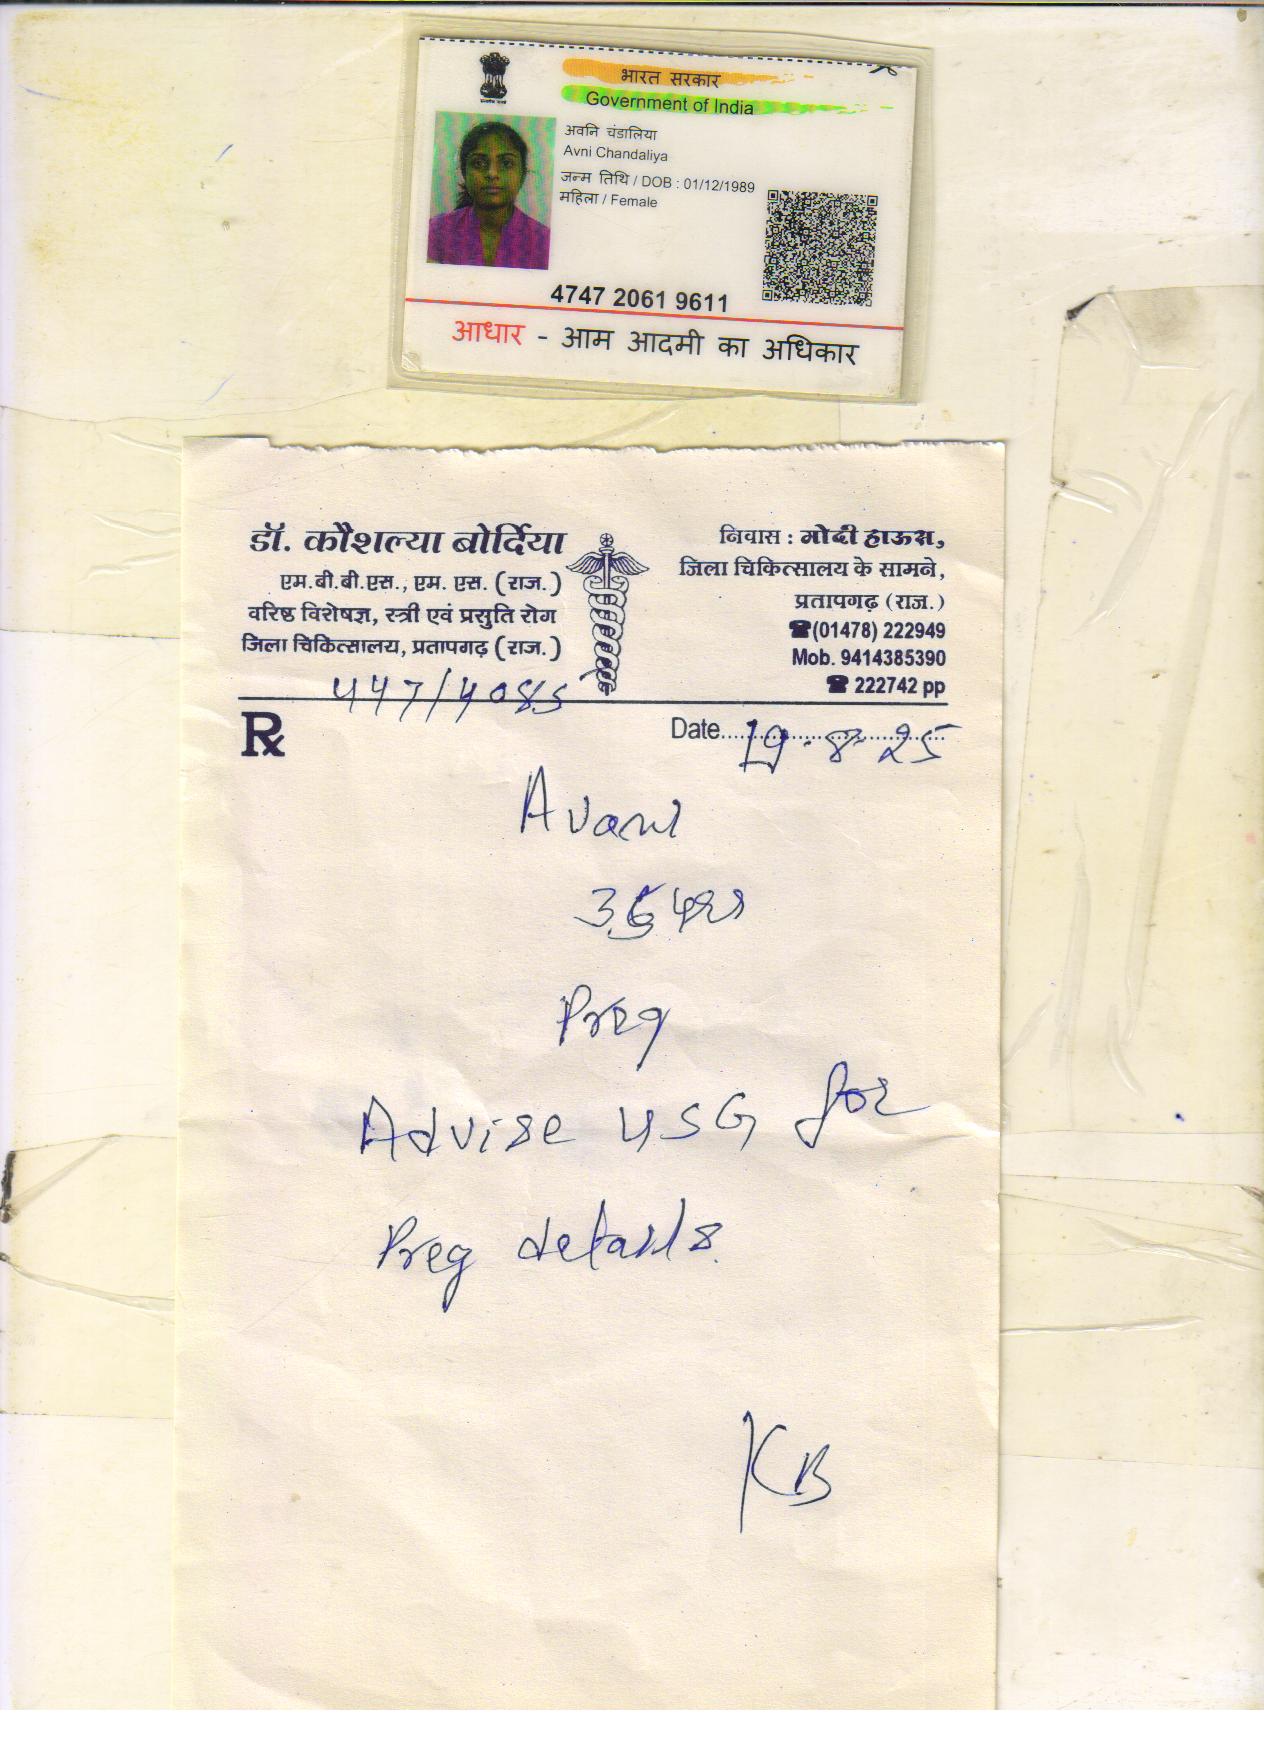 भारत सरकार
Government of India
अवनि चंडालिया
Avni Chandaliya
जन्म तिथि / DOB : 01/12/1989
महिला / Female
4747 2061 9611
आधार - आम आदमी का अधिकार
डॉ. कौशल्या बोर्दिया
एम.बी.बी.एस., एम. एस. (राज.)
वरिष्ठ विशेषज्ञ, स्त्री एवं प्रसुति रोग
जिला चिकित्सालय, प्रतापगढ़ (राज.)
निवास : मोदी हाऊस,
जिला चिकित्सालय के सामने,
प्रतापगढ़ (राज.)
☎(01478) 222949
Mob. 9414385390
☎ 222742 pp
447/4085
Rx
Date 19-8-25
Avani
Preg
Advise USG for
Preg details.
KB